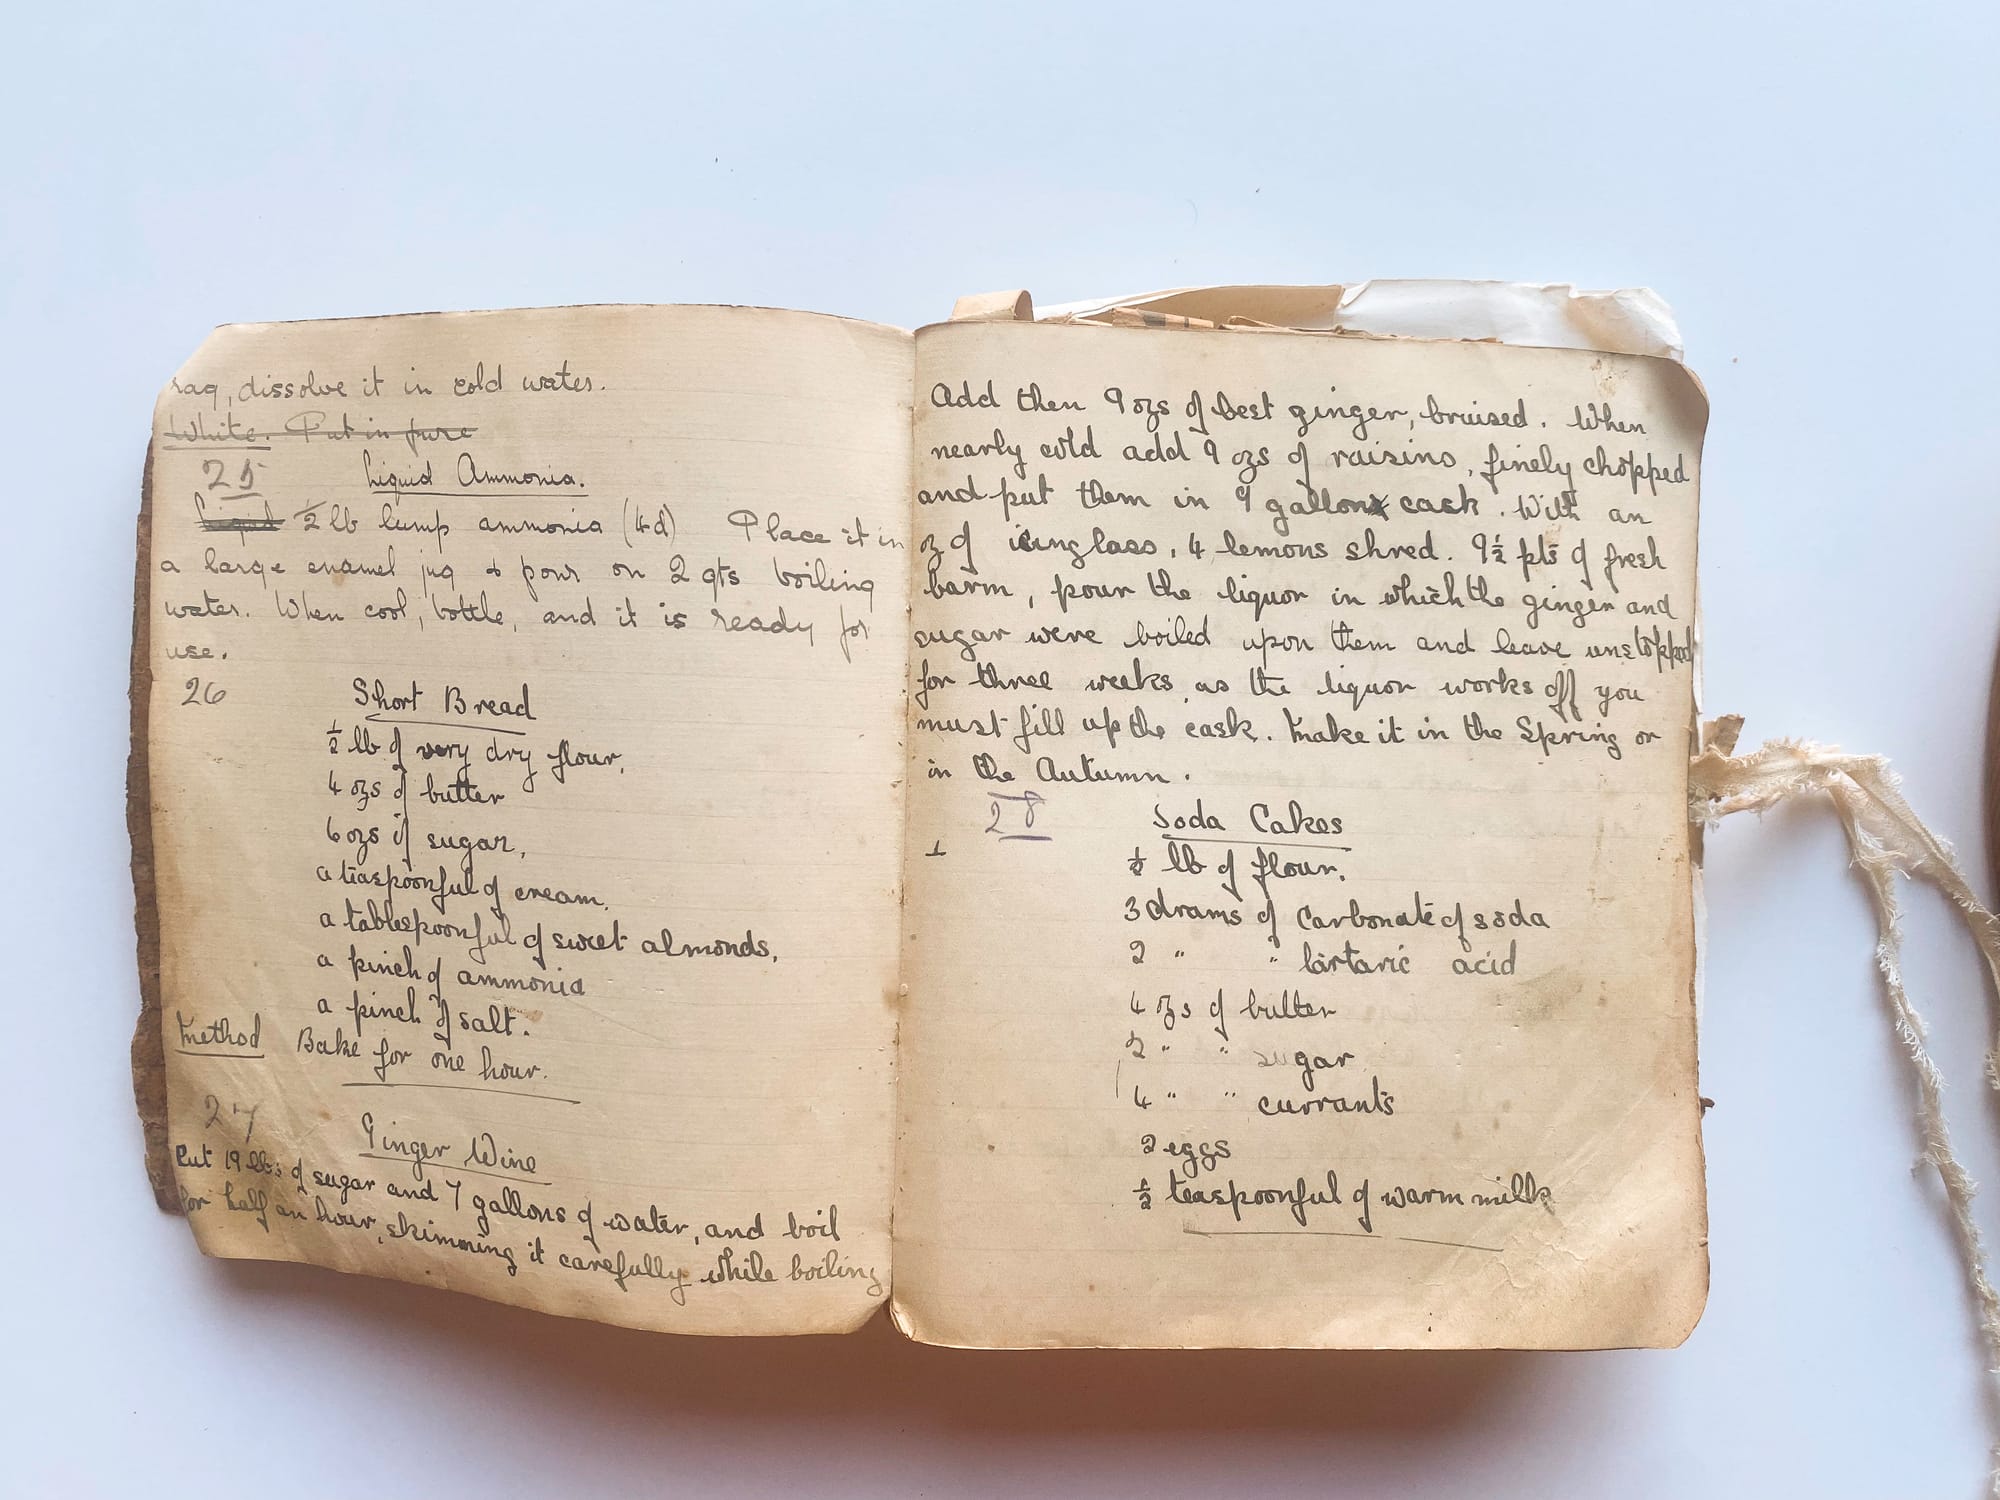 rag, dissolve it in cold water.
White. Put in pure
25 Liquid Ammonia.
Liquid ½ lb lump ammonia (4d) Place it in
a large enamel jug & pour on 2 qts boiling
water. When cool, bottle, and it is ready for
use.
26 Short Bread
½ lb of very dry flour,
4 ozs of butter
6 ozs of sugar,
a teaspoonful of cream,
a tablespoonful of sweet almonds,
a pinch of ammonia
a pinch of salt.
Method Bake for one hour.
27
Ginger Wine
Put 19 lbs of sugar and 7 gallons of water, and boil
for half an hour, skimming it carefully while boiling
Add then 9 ozs of best ginger, bruised. When
nearly cold add 9 ozs of raisins, finely chopped
and put them in 9 gallon cask. With an
oz of isinglass, 4 lemons shred. 9½ pts of fresh
barm, pour the liquor in which the ginger and
sugar were boiled upon them and leave unstopped
for three weeks, as the liquor works off you
must fill up the cask. Make it in the Spring or
in the Autumn.
28 Soda Cakes
½ lb of flour.
3 drams of Carbonate of soda
2 " " tartaric acid
4 ozs of butter
2 " " sugar
4 " " currants
2 eggs
½ teaspoonful of warm milk